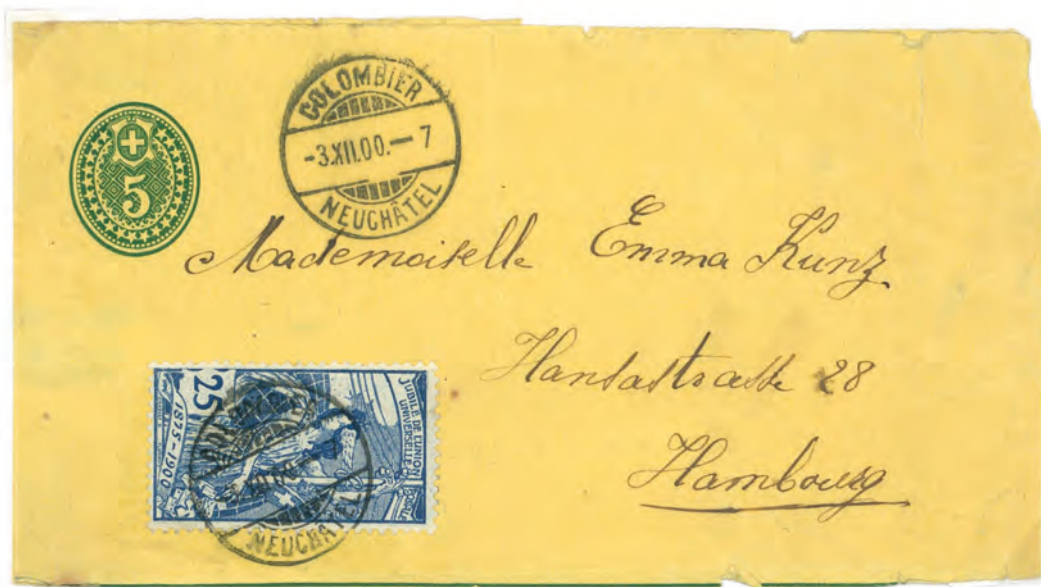 COLOMBIER
-3.XII.00.-7
NEUCHÂTEL
5
Mademoiselle Emma Kunz
Hansastrasse 28
Hambourg
25
1875-1900
JUBILÉ DE L'UNION
UNIVERSELLE
COLOMBIER
XII.00.
NEUCHÂTEL